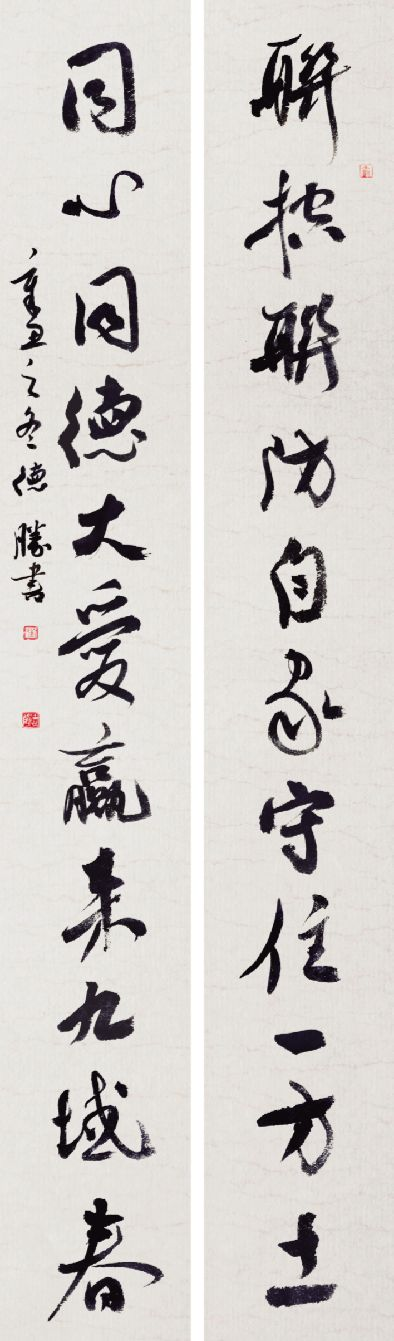 聯控聯防自家守住一方土
同心同德大愛贏来九域春
辛丑之冬德勝書